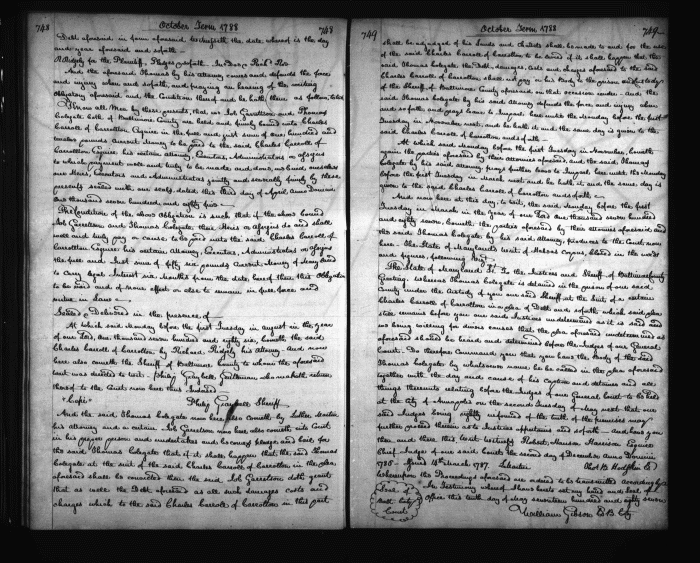 748 October Term 1788 748
Debt aforesaid in form aforesaid because the date whereof is the day
and year aforesaid and so forth
R. Ridgely for the Plaintiff, Pledges and so forth. In Doe & Rich.d Roe
And the aforesaid Thomas by his attorney comes and defends the force
and injury when and so forth, and praying an hearing of the writing
Obligatory aforesaid, and the Condition thereof and he hath them as follow, to wit
Know all Men by these presents, that we Job Garretson and Thomas
Colegate both of Baltimore County are held and firmly bound unto Charles
Carroll of Carrollton Esquire in the full and just sum of one hundred and
twelve pounds Current Money to be paid to the said Charles Carroll of
Carrollton Esquire his certain attorney, Executors, Administrators or assigns
to which payment well and truly to be made and done, we bind ourselves
our Heirs Executors and Administrators jointly and severally firmly by these
presents sealed with our seals dated this third day of April Anno Domini
One thousand seven hundred and eighty five
The Condition of the above Obligation is such that if the above bound
Job Garretson and Thomas Colegate, their Heirs or Assigns do and shall
well and truly pay or cause to be paid unto the said Charles Carroll of
Carrollton Esquire his certain Attorney, Executors, Administrators or Assigns
the full and Just Sum of fifty six pounds Current Money of Maryland
to carry legal Interest six Months from the date hereof then this Obligation
to be void and of none effect or else to remain in full force and
virtue in Law
Sealed & Delivered in the presence of
At which said Monday before the first Tuesday in August in the year
of our Lord, One thousand seven hundred and eighty six, cometh the said
Charles Carroll of Carrollton by Richard Ridgely his attorney. And now
here also cometh the Sheriff of Baltimore County to whom the aforesaid
writ was directed to wit. Philip Gandell, Gentleman, who maketh return
thereof to the Court now here thus Indorsed
"Cepi" Philip Gandell Sheriff
And the said Thomas Colegate now here also cometh by Luther Martin
his attorney and a certain Job Garretson now here also cometh into Court
in his proper person and undertakes and becomes pledge and bail for
the said Thomas Colegate that if it shall happen that the said Thomas
Colegate at the suit of the said Charles Carroll of Carrollton in the plea
aforesaid shall be convicted then the said Job Garretson doth grant
that as well the Debt aforesaid as all such damages costs and
charges which to the said Charles Carroll of Carrollton in this part
749 October Term 1788 749
shall be adjudged of his Lands and chattels shall be made to and for the use
of the said Charles Carroll of Carrollton to be levied if it shall happen that the
said Thomas Colegate the Debt, damages, costs and charges aforesaid to the said
Charles Carroll of Carrollton shall not pay or his Body to the prison and custody
of the Sheriff of Baltimore County aforesaid on that occasion render. And the
said Thomas Colegate by his said Attorney defends the force and injury when
and so forth and prays leave to Imparl here until the Monday before the first
Tuesday in November next and he hath it, and the same day is given to the
said Charles Carroll of Carrollton and so forth
At which said Monday before the first Tuesday in November, cometh
again the parties aforesaid by their attornies aforesaid, and the said Thomas
Colegate by his said Attorney prays further leave to Imparl here until the Monday
before the first Tuesday in March next and he hath it, and the same day is
given to the said Charles Carroll of Carrollton and so forth
And now here at this day, to wit, the said Monday before the first
Tuesday in March in the year of our Lord one thousand seven hundred
and eighty seven, cometh the parties aforesaid by their attornies aforesaid and
the said Thomas Colegate by his said attorney, produces to the Court now
here - the State of Maryland's writ of Habeas Corpus, filed in the words
and figures following to wit
The State of Maryland Sc. To the Justices and Sheriff of Baltimore County
Greeting. Whereas Thomas Colegate is detained in the prison of our said
County under the Custody of you our said Sheriff at the suit of a certain
Charles Carroll of Carrollton in a plea of Debt and so forth which said plea
still remains before you our said Justices undetermined as it is said and
we being willing for divers causes that the plea aforesaid undetermined as
aforesaid should be heard and determined before the Judges of our General
Court. We therefore Command you that you have the Body of the said
Thomas Colegate by whatsoever name he be called in the plea aforesaid
together with the day and cause of his Caption and detainer and all
things thereunto relating before the Judges of our General Court to be held
at the City of Annapolis on the second Tuesday of May next that our
said Judges being rightly informed of the truth of the premises may
further proceed therein as to Justice appertains and so forth. And have you
then and there this writ. Witness Robert Hanson Harrison Esquire
Chief Judge of our said Court the second day of December Anno Domini
1786. Issued 14th March 1787.
Whereupon the Proceedings aforesaid are ordered to be transmitted accordingly &c
In Testimony whereof I have hereto set my hand and Seal of
Office this tenth day of May seventeen hundred and eighty seven
Seal of Balt. County Court
William Gibson